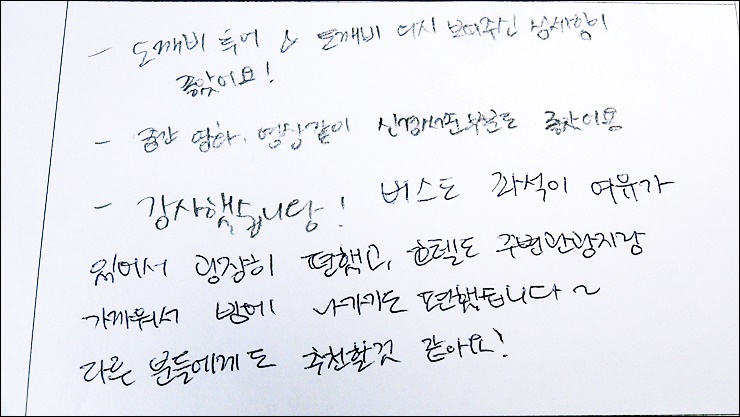 - 도깨비 투어 & 도깨비 다시 보여주신 섬세함이
좋았어요!
- 중간 영화, 영상같이 신경써준부분도 좋았어용
- 감사했습니당! 버스도 좌석이 여유가
있어서 굉장히 편했고, 호텔도 주변관광지랑
가까워서 밤에 나가기도 편했습니다~
다른 분들에게도 추천할것 같아요!